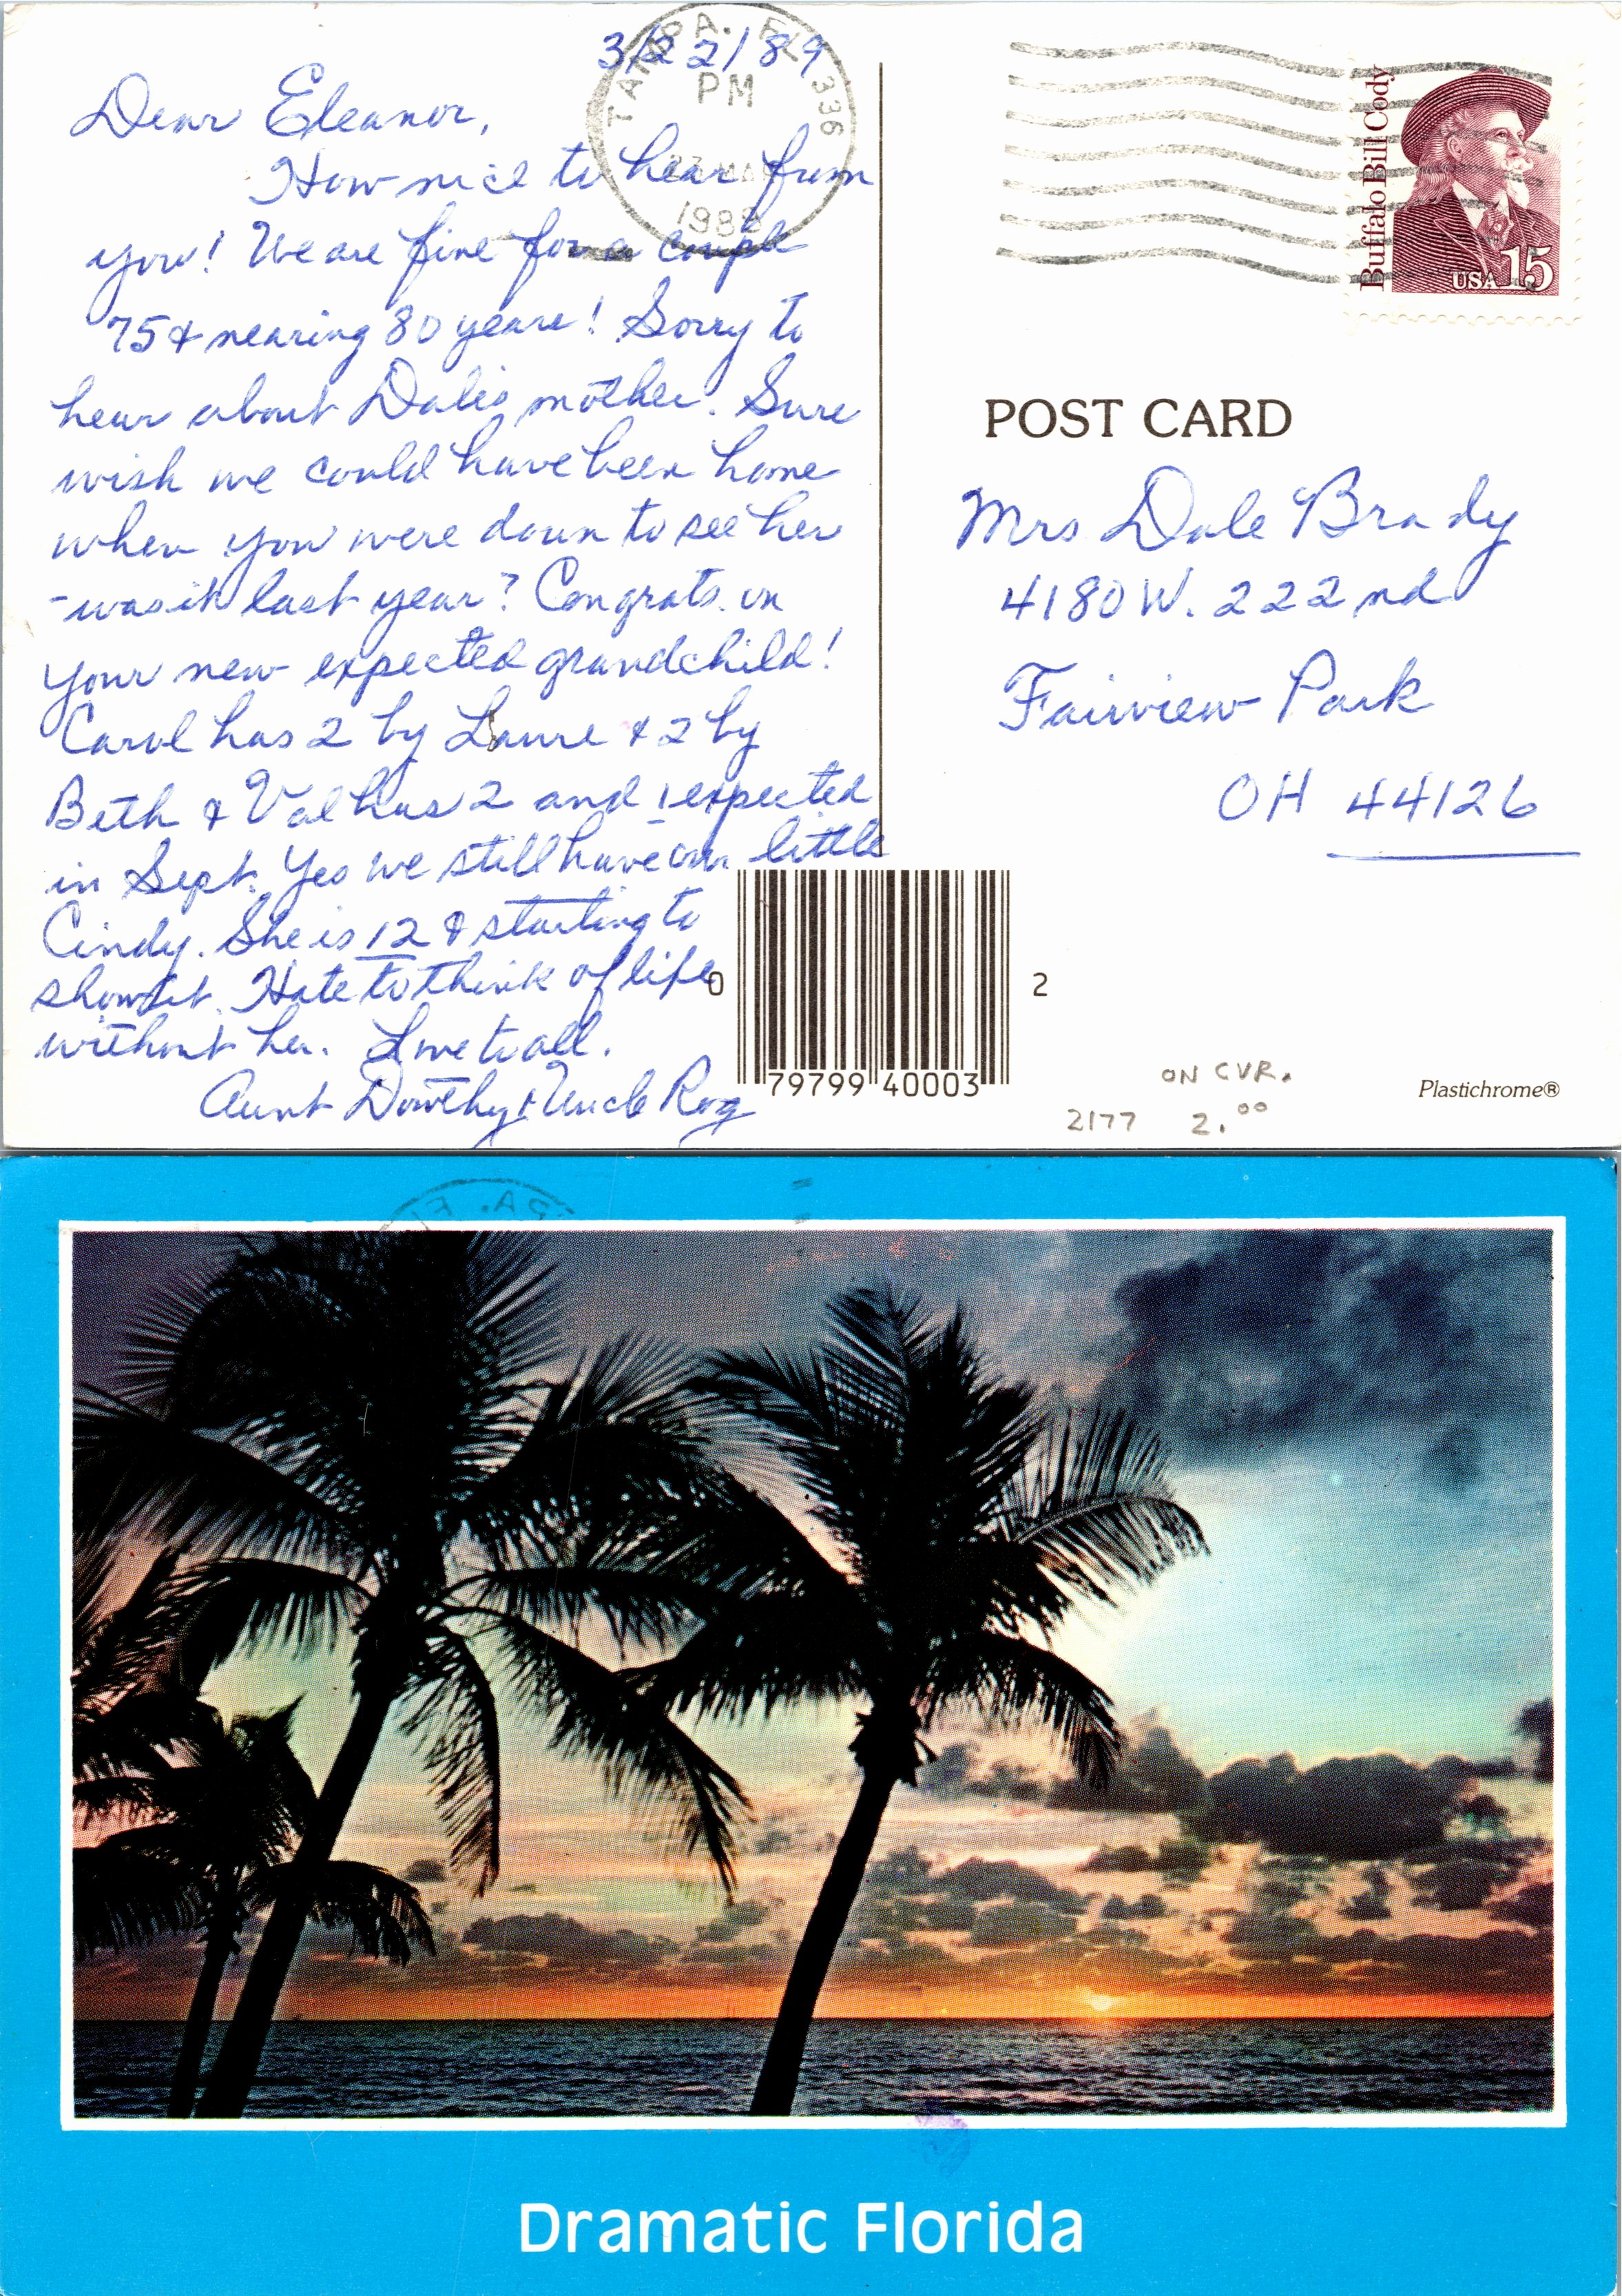 3/22/89
TAMPA. FL 336
PM
1989
Dear Eleanor,
How nice to hear from
you! We are fine for a couple
75 & nearing 80 years! Sorry to
hear about Dale's mother. Sure
wish we could have been home
when you were down to see her
- was it last year? Congrats. on
your new expected grandchild!
Carol has 2 by Laure & 2 by
Beth & Val has 2 and 1 expected
in Sept. Yes we still have our little
Cindy. She is 12 & starting to
show it. Hate to think of life
without her. Love to all.
Aunt Dorothy & Uncle Rog
Buffalo Bill Cody
USA 15
POST CARD
Mrs Dale Brady
4180 W. 222nd
Fairview Park
OH 44126
0 79799 40003 2
ON CVR.
2177 2.00
Plastichrome®
PA. FL
Dramatic Florida